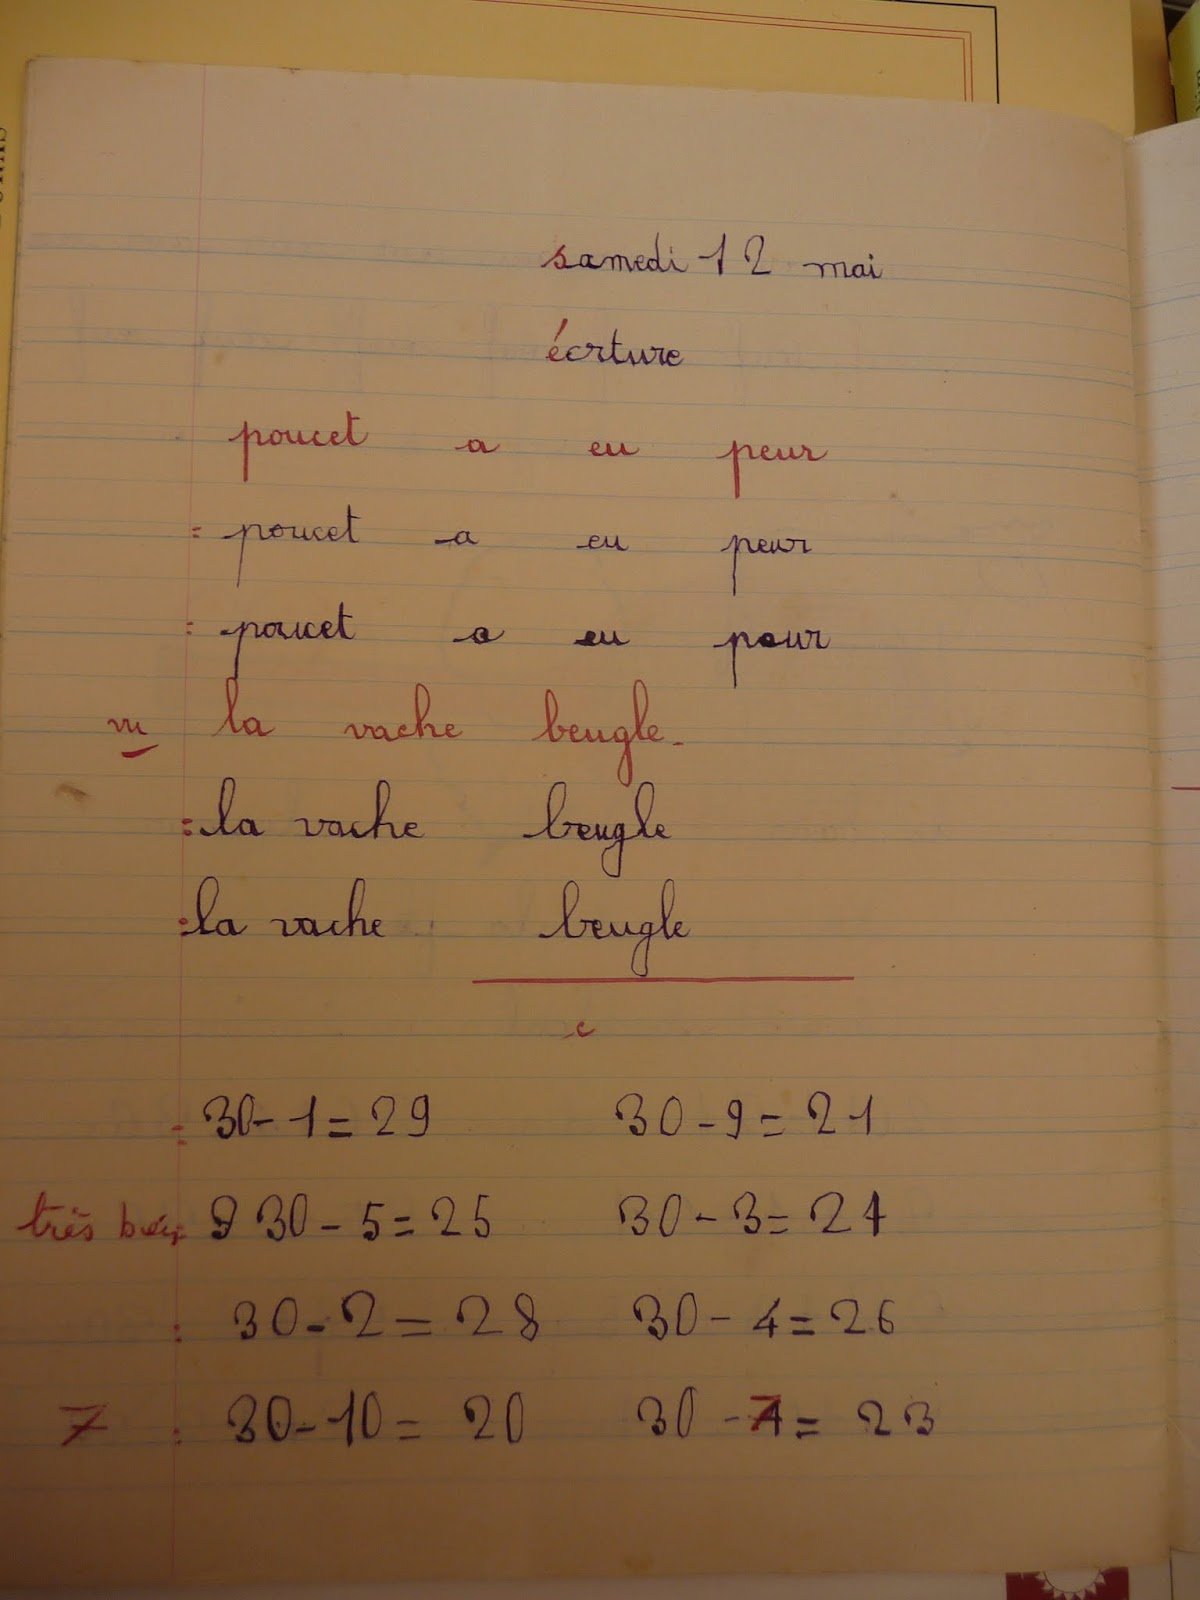 samedi 12 mai
écrture
poucet a eu peur
: poucet a eu peur
: poucet a eu pour
vu la vache beugle.
: la vache beugle
: la vache beugle
c
: 30-1=29 30-9=21
très bien 9 30-5=25 30-3=27
: 30-2=28 30-4=26
7 : 30-10=20 30-7=23